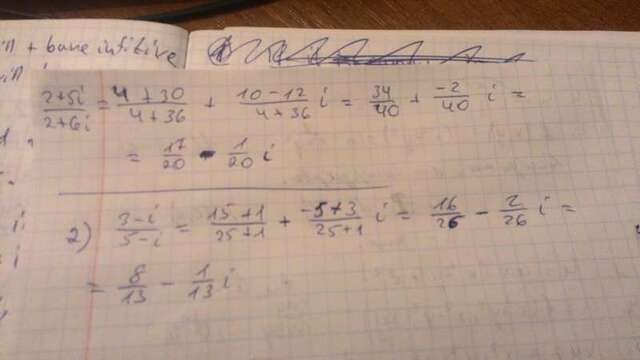 + bare infitive
\frac{2+5i}{2+6i} = \frac{4+30}{4+36} + \frac{10-12}{4+36} i = \frac{34}{40} + \frac{-2}{40} i =
= \frac{17}{20} - \frac{1}{20} i
2) \frac{3-i}{5-i} = \frac{15+1}{25+1} + \frac{-5+3}{25+1} i = \frac{16}{26} - \frac{2}{26} i =
= \frac{8}{13} - \frac{1}{13} i